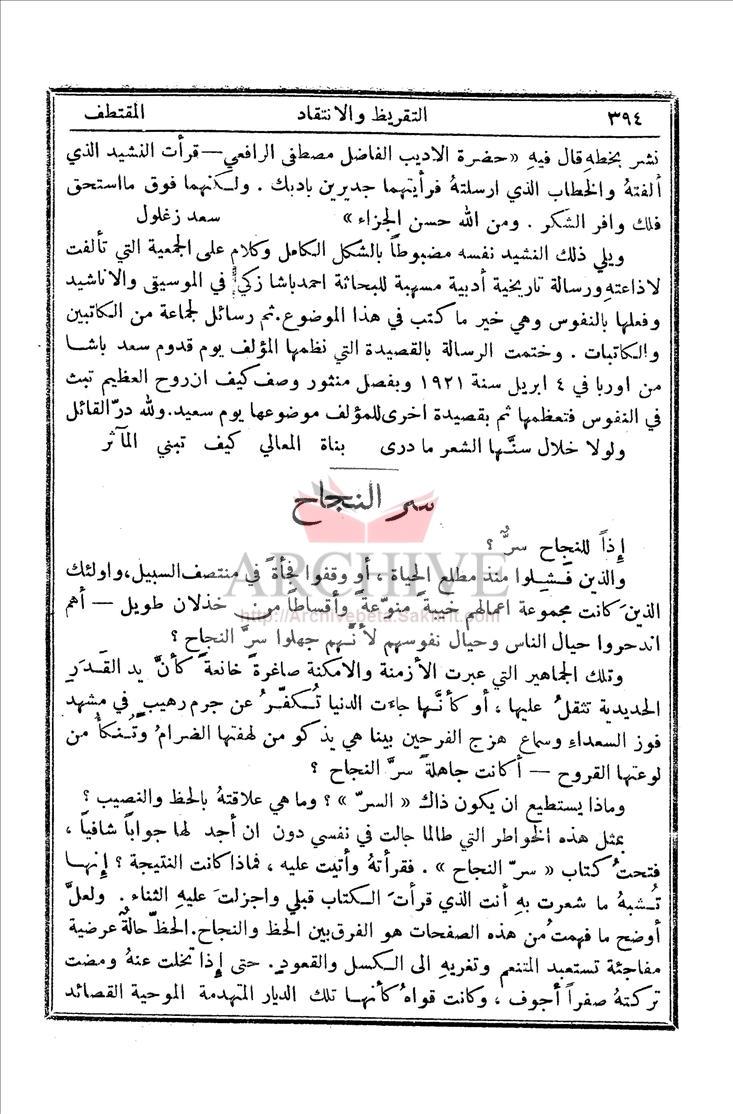 ٣٩٤ التقريظ والانتقاد المقتطف
نشر بخطهِ قال فيهِ «حضرة الاديب الفاضل مصطفى الرافعي — قرأت النشيد الذي
ألفتهُ والخطاب الذي ارسلتهُ فرأيتهما جديرين بادبك . ولكنهما فوق ما استحق
فلك وافر الشكر . ومن الله حسن الجزاء » سعد زغلول
ويلي ذلك النشيد نفسه مضبوطاً بالشكل الكامل وكلام على الجمعية التي تألفت
لاذاعتهِ ورسالة تاريخية أدبية مسهبة للبحاثة احمد باشا زكي في الموسيقى والاناشيد
وفعلها بالنفوس وهي خير ما كتب في هذا الموضوع. ثم رسائل لجماعة من الكاتبين
والكاتبات . وختمت الرسالة بالقصيدة التي نظمها المؤلف يوم قدوم سعد باشا
من اوربا في ٤ ابريل سنة ١٩٢١ وبفصل منثور وصف كيف ان روح العظيم تبث
في النفوس فتعظمها ثم بقصيدة اخرى للمؤلف موضوعها يوم سعيد. ولله درّ القائل
ولولا خلال سنَّها الشعر ما درى بناة المعالي كيف تبني المآثر
سر النجاح
إِذاً للنجاح سرٌّ ؟
والذين فَشِلوا منذ مطلع الحياة ، أو وقفوا فجأةً في منتصف السبيل، واولئك
الذين كانت مجموعة اعمالهم خيبةً منوّعةً وأقساطاً من خذلان طويل — أهم
اندحروا حيال الناس وحيال نفوسهم لأنَّهم جهلوا سرَّ النجاح ؟
وتلك الجماهير التي عبرت الأزمنة والامكنة صاغرةً خانعةً كأنَّ يد القَدَرِ
الحديدية تثقلُ عليها ، أو كأنَّها جاءَت الدنيا تُكفّرُ عن جرم رهيبٍ في مشهد
فوز السعداءِ وسماع هزج الفرحين بينا هي يذكو من لهفتها الضرامُ وتُنكأُ من
لوعتها القروح — أكانت جاهلةً سرَّ النجاح ؟
وماذا يستطيع ان يكون ذاك « السرّ » ؟ وما هي علاقتهُ بالحظ والنصيب ؟
بمثل هذه الخواطر التي طالما جالت في نفسي دون ان أجد لها جواباً شافياً ،
فتحتُ كتاب « سرّ النجاح » . فقرأتهُ وأتيت عليه ، فماذا كانت النتيجة ؟ إِنها
تُشبهُ ما شعرت بهِ أنت الذي قرأتَ الكتاب قبلي واجزلت عليهِ الثناء . ولعلَّ
أوضح ما فهمتُ من هذه الصفحات هو الفرق بين الحظ والنجاح. الحظّ حالةٌ عرضية
مفاجئة تستعبد المتنعم وتغريهِ الى الكسل والقعودِ. حتى إِذا تخلت عنهُ ومضت
تركتهُ صفراً أجوف ، وكانت قواهُ كأنها تلك الديار المتهدمة الموحية القصائد
ARCHIVE
http://Archivebeta.Sakhrit.com